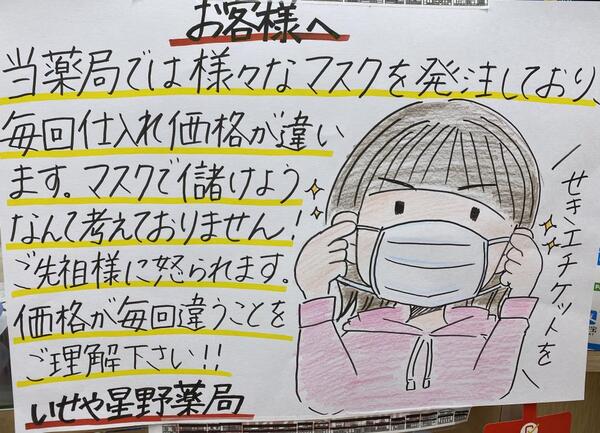 お客様へ
当薬局では様々なマスクを発注しており、
毎回仕入れ価格が違い
ます。マスクで儲けよう
なんて考えておりません!
ご先祖様に怒られます。
価格が毎回違うことを
ご理解下さい!!
いせや星野薬局
せきエチケットを